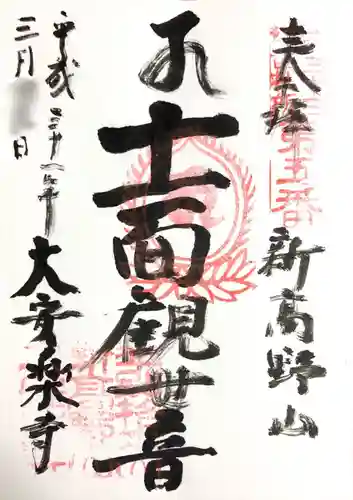 奉拝
新高野山
十一面観世音
平成三十一年
三月 日
大安楽寺
第五番